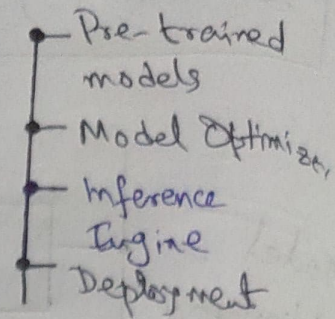 Pre-trained
models
Model Optimizer
Inference
Engine
Deployment